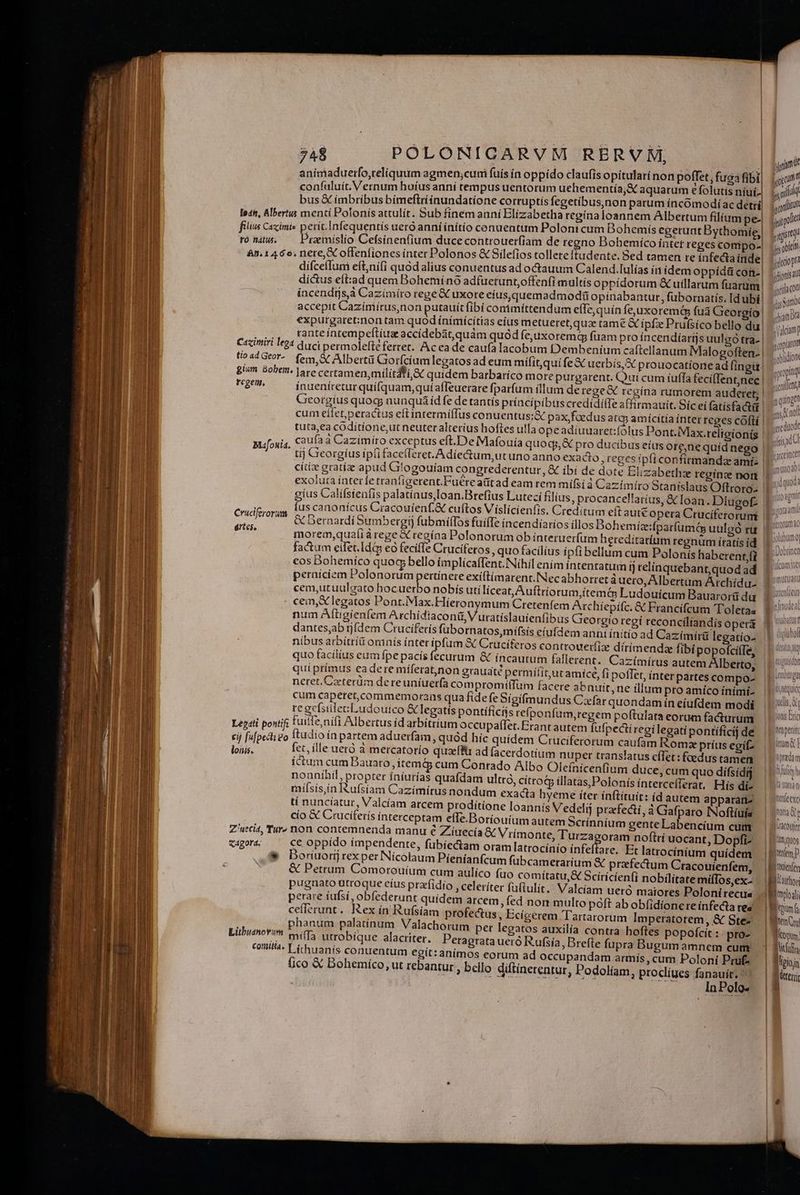 748 POLONICARVM RERVM,
animaduerso, reliquum agmen, cum suis in oppido clausis opitulari non posset, fuga sibi
consuluit. Vernum huius anni tempus uentorum uehementia, & aquarum è solutis niui-
bus & imbribus bimestri inundatione corruptis segetibus, non parum incōmodi ac detri
menti Polonis attulit. Sub finem anni Elizabetha regina Ioannem Albertum filium pe-
Ioan. Albertus
filius Cazimi-
ro natus.
perit. Insequentis uerò anni initio conuentum Poloni cum Bohemis egerunt Bythomiæ,
Præmislio Cessinensium duce controuersiam de regno Bohemico inter reges compo-
An. 1460.
nere, & offensiones inter Polonos & Silesios tollere studente. Sed tamen re infecta inde
discessum est, nisi quòd alius conuentus ad octauum Calend. Iulias in idem oppidū con-
dictus est: ad quem Bohemi nō adfuerunt, offensi multis oppidorum & uillarum suarum
incendijs, à Cazimiro rege & uxore eius, quemadmodū opinabantur, subornatis. Id ubi
accepit Cazimirus, non putauit sibi committendum esse, quin se, uxoremq́; suā Georgio
expurgaret: non tam quòd inimicitias eius metueret, quæ tamē & ipsæ Prussico bello du
rante intempestiuæ accidebāt, quàm quòd se, uxoremq́; suam pro incendiarijs uulgò tra-
Cazimiri lega
tio ad Geor-
gium Bohem.
regem.
duci permolestè ferret. Ac ea de causa Iacobum Dembenium castellanum Malogosten-
sem, & Albertū Gorscium legatos ad eum misit, qui se & uerbis, & prouocatione ad singu
lare certamen, militāsi, & quidem barbarico more purgarent. Qui cum iussa fecissent, nec
inueniretur quisquam, qui asseuerare sparsum illum de rege & regina rumorem auderet;
Georgius quoq; nunquā id se de tantis principibus credidisse affirmauit. Sic ei satisfactū
cum esset, peractus est intermissus conuentus: & pax, fœdus atq; amicitia inter reges cōsti
tuta, ea cōditione, ut neuter alterius hostes ulla ope adiuuaret: solus Pont. Max. religionis
Masouia.
causa à Cazimiro exceptus est. De Masouia quoq;, & pro ducibus eius orō, ne quid nego
tij Georgius ipsi facesseret. Adiectum, ut uno anno exacto, reges ipsi confirmandæ ami-
citiæ gratiæ apud Glogouiam congrederentur, & ibi de dote Elizabethæ reginæ non
exoluta inter se transigerent. Fuère aūt ad eam rem missi à Cazimiro Stanislaus Ostroro-
gius Calissiensis palatinus, Ioan. Brefius Luteci filius, procancellarius, & Ioan. Dlugos-
Cruciferorum
artes.
sus canonicus Cracouiens. & custos Visliciensis. Creditum est autē opera Cruciferorum
& Bernardi Sumbergij submissos fuisse incendiarios illos Bohemiæ: sparsumq́; uulgò ru
morem, quasi à rege & regina Polonorum ob interuersum hereditarium regnum iratis id
factum esset. Idq; eò fecisse Cruciferos, quo facilius ipsi bellum cum Polonis haberent, si
eos Bohemico quoq; bello implicassent. Nihil enim intentatum ij relinquebant, quod ad
perniciem Polonorum pertinere existimarent. Nec abhorret à uero, Albertum Archidu-
cem, ut uulgato hoc uerbo nobis uti liceat, Austriorum, itemq́; Ludouicum Bauarorū du
cem, & legatos Pont. Max. Hieronymum Cretensem Archiepisc. & Franciscum Toletæ
num Astigiensem Archidiaconū, Vuratislauiensibus Georgio regi reconciliandis operā
dantes, ab ijsdem Cruciferis subornatos, missis eiusdem anni initio ad Cazimirū legatio-
nibus arbitriū omnis inter ipsum & Cruciferos controuersiæ dirimendæ sibi popoſcisse,
quo facilius eum spe pacis securum & incautum fallerent. Cazimirus autem Alberto,
qui primus ea de re miserat, non grauatè permisit, ut amicè, si posset, inter partes compo-
neret. Cæterùm de re uniuersa compromissum facere abnuit, ne illum pro amico inimi-
cum caperet, commemorans qua fide se Sigismundus Cæsar quondam in eiusdem modi
re gessisset: Ludouico & legatis pontificijs responsum, regem postulata eorum facturum
Legati pontifi
cij suspecti Po
lonis.
fuisse, nisi Albertus id arbitrium occupasset. Erant autem suspecti regi legati pontificij de
studio in partem aduersam, quòd hic quidem Cruciferorum causam Romæ prius egis-
set, ille uerò à mercatorio quæstu ad sacerdotium nuper translatus esset: fœdus tamen
ictum cum Bauaro, itemq́; cum Conrado Albo Olesnicensium duce, cum quo dissidij
nonnihil, propter iniurias quasdam ultrò, citroq; illatas, Polonis intercesserat. His di-
missis, in Russiam Cazimirus nondum exacta hyeme iter instituit: id autem apparan-
ti nunciatur, Valciam arcem proditione Ioannis Vedelij præfecti, à Gasparo Nostiuis
cio & Cruciferis interceptam esse. Boriouium autem Scrinnium gente Labencium cum
Z'uecia, Tur-
zagora.
non contemnenda manu è Ziuecia & Vrimonte, Turzagoram nostri uocant, Dopsi-
ce oppido impendente, subiectam oram latrocinio infestare. Et latrocinium quidem
Boriuorij rex per Nicolaum Pieniansķum subcamerarium & præfectum Cracouiensem,
& Petrum Comorouium cum aulico suo comitatu, & Sciriciensi nobilitate missos, ex-
pugnato utroque eius præsidio, celeriter sustulit. Valciam uerò maiores Poloni recu-
perare iussi, obsederunt quidem arcem, sed non multo pòst ab obsidione re infecta re-
cesserunt. Rex in Russiam profectus, Ecigerem Tartarorum Imperatorem, & Ste-
phanum palatinum Valachorum per legatos auxilia contra hostes poposcit: pro-
Lithuanorum
comitia.
missa utrobique alacriter. Peragrata uerò Russia, Breste supra Bugum amnem cum
Lithuanis conuentum egit: animos eorum ad occupandam armis, cum Poloni Prus-
sico & Bohemico, ut rebantur, bello distinerentur, Podoliam, procliues sanauit.
In Polo-